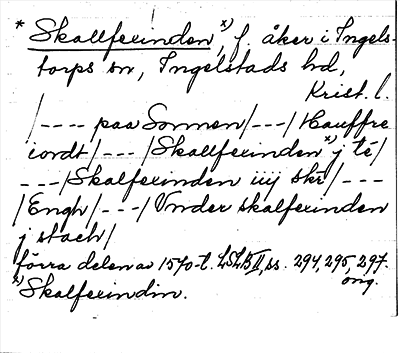 * Skallferinden x), f. åker i Ingels-
torps sn, Ingelstads hd,
Krist. l.
/---- paa Sonnen/---/Hauffre
iordt/---/Skallferinden x) j té/
---/Skalferinden iij skr/---
/Engh/---/Vnder skalferinden
j stach/
förra delen av 1570-t. LSLB II, ss. 294, 295, 297.
orig.
x) Skalferindin.